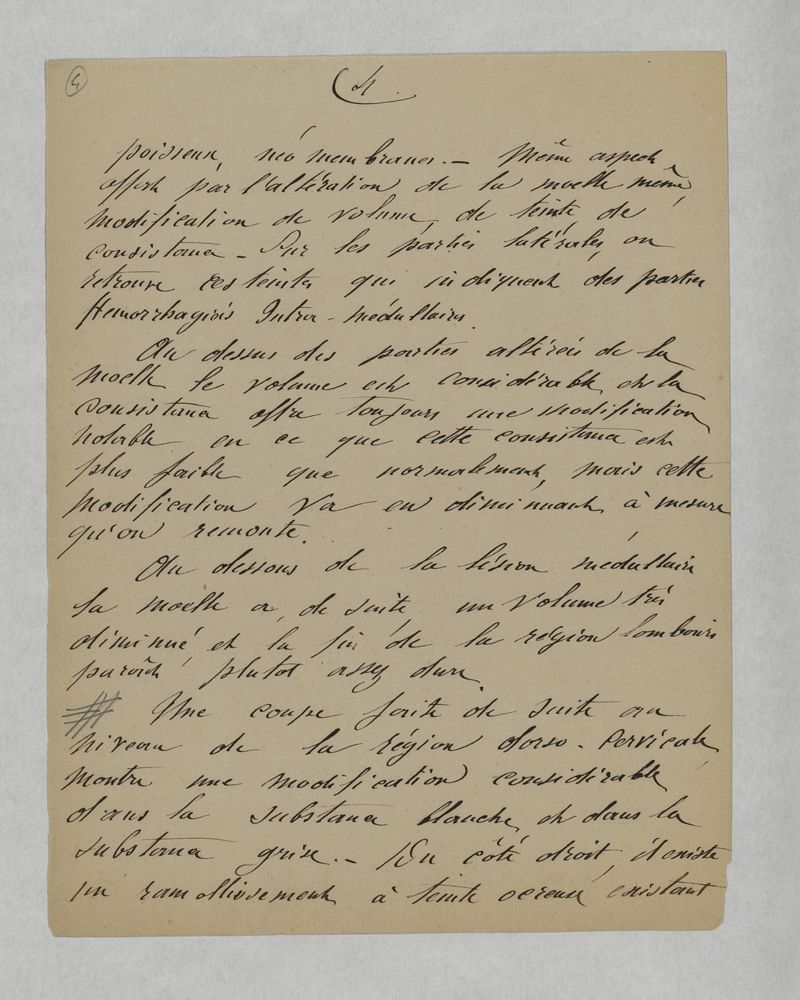 4.
poisseux, néo membranes. — Même aspect
offert par l'altération de la moelle même,
modification de volume, de teinte, de
consistance — Sur les parties latérales, on
retrouve ces teintes qui indiquent des parties
Hémorrhagiés Intra-médullaires.
Au dessus des parties altérées de la
Moelle le volume est considérable, et la
consistance offre toujours une modification,
notable en ce que cette consistance est
plus faible que normalement, mais cette
modification va en diminuant, à mesure
qu'on remonte.
Au dessous de la lésion médullaire
la moelle a, de suite, un volume très
diminué, et la fin de la région lombaire
paroît plutot assez dure.
Une coupe faite de suite au
niveau de la région dorso-cervicale,
montre une modification considérable,
dans la substance blanche, et dans la
substance grise. — Du côté droit, il existe
un ramollissement à teinte ocreuse, existant